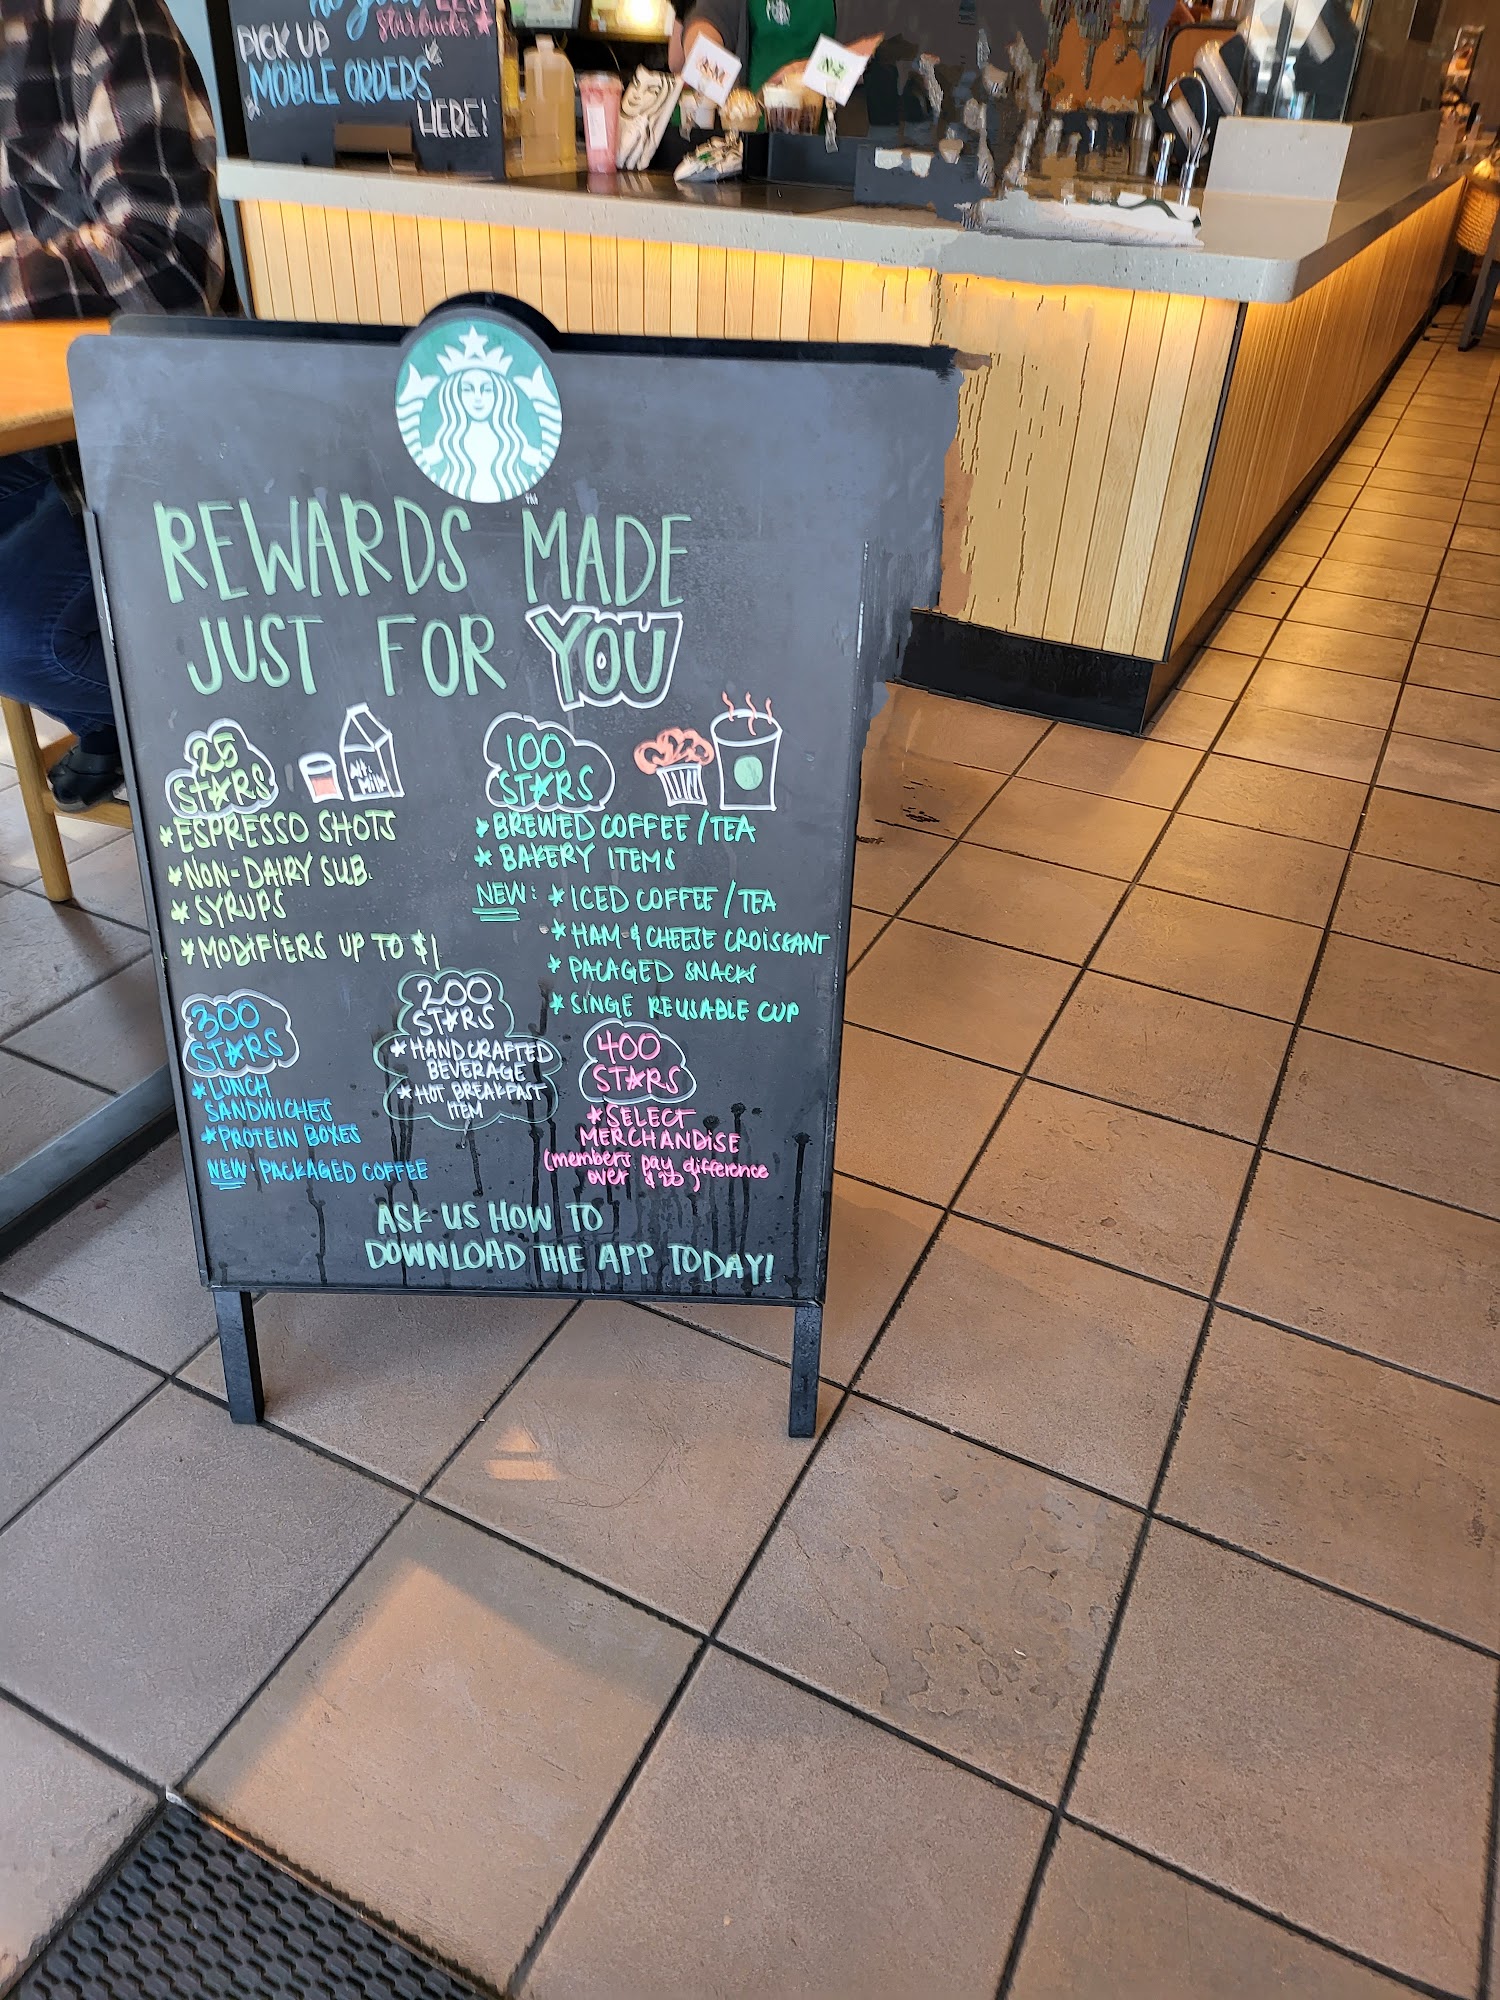 PICK UP
MOBILE ORDERS
HERE!
A-M
N-Z
TM
REWARDS MADE
JUST FOR YOU
25
STARS
Alt.
Milk
* ESPRESSO SHOTS
* NON-DAIRY SUB.
* SYRUPS
* MODIFIERS UP TO $1
100
STARS
* BREWED COFFEE / TEA
* BAKERY ITEMS
NEW: * ICED COFFEE / TEA
* HAM & CHEESE CROISSANT
* PACAGED SNACKS
* SINGE REUSABLE CUP
200
STARS
* HANDCRAFTED
BEVERAGE
* HOT BREAKFAST
ITEM
300
STARS
* LUNCH
SANDWICHES
* PROTEIN BOXES
NEW: PACKAGED COFFEE
400
STARS
* SELECT
MERCHANDISE
(members pay difference
over $20)
ASK US HOW TO
DOWNLOAD THE APP TODAY!